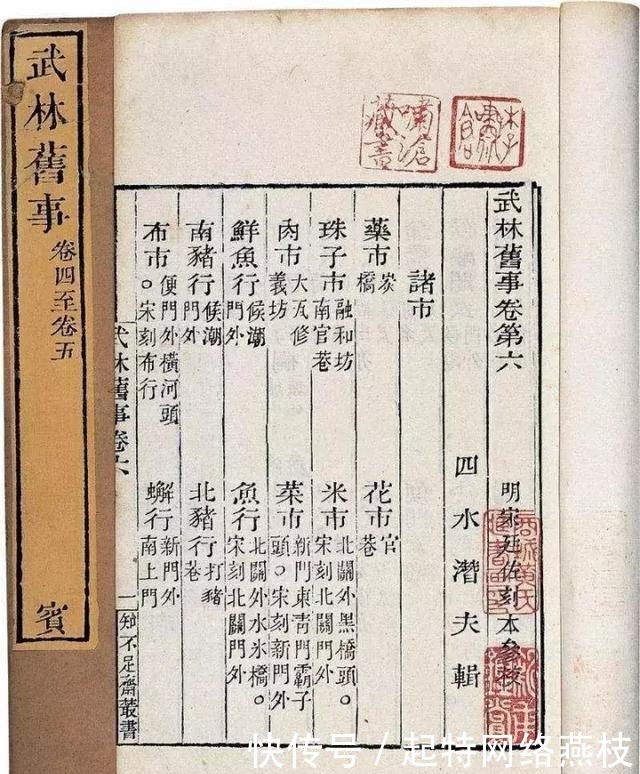 武林舊事
卷四至卷五
賓
武林舊事卷第六 明宋廷佐刻本參校
四水潛夫輯
諸市
藥市炭橋 花市官巷
珠子市融和坊南官巷 米市北關外黑橋頭。宋刻北關門外
肉市大瓦修義坊 菜市新門東青門霸子頭。宋刻新門外
鮮魚行候潮門外 魚行北關外水氷橋。宋刻北關門外
南豬行候潮門外 北豬行打豬巷
布市便門外橫河頭。宋刻布行 蠏行新門外南上門
武林舊事卷六 一 知不足齋叢書
嘯滄藏書
快传号/起特网络燕枝